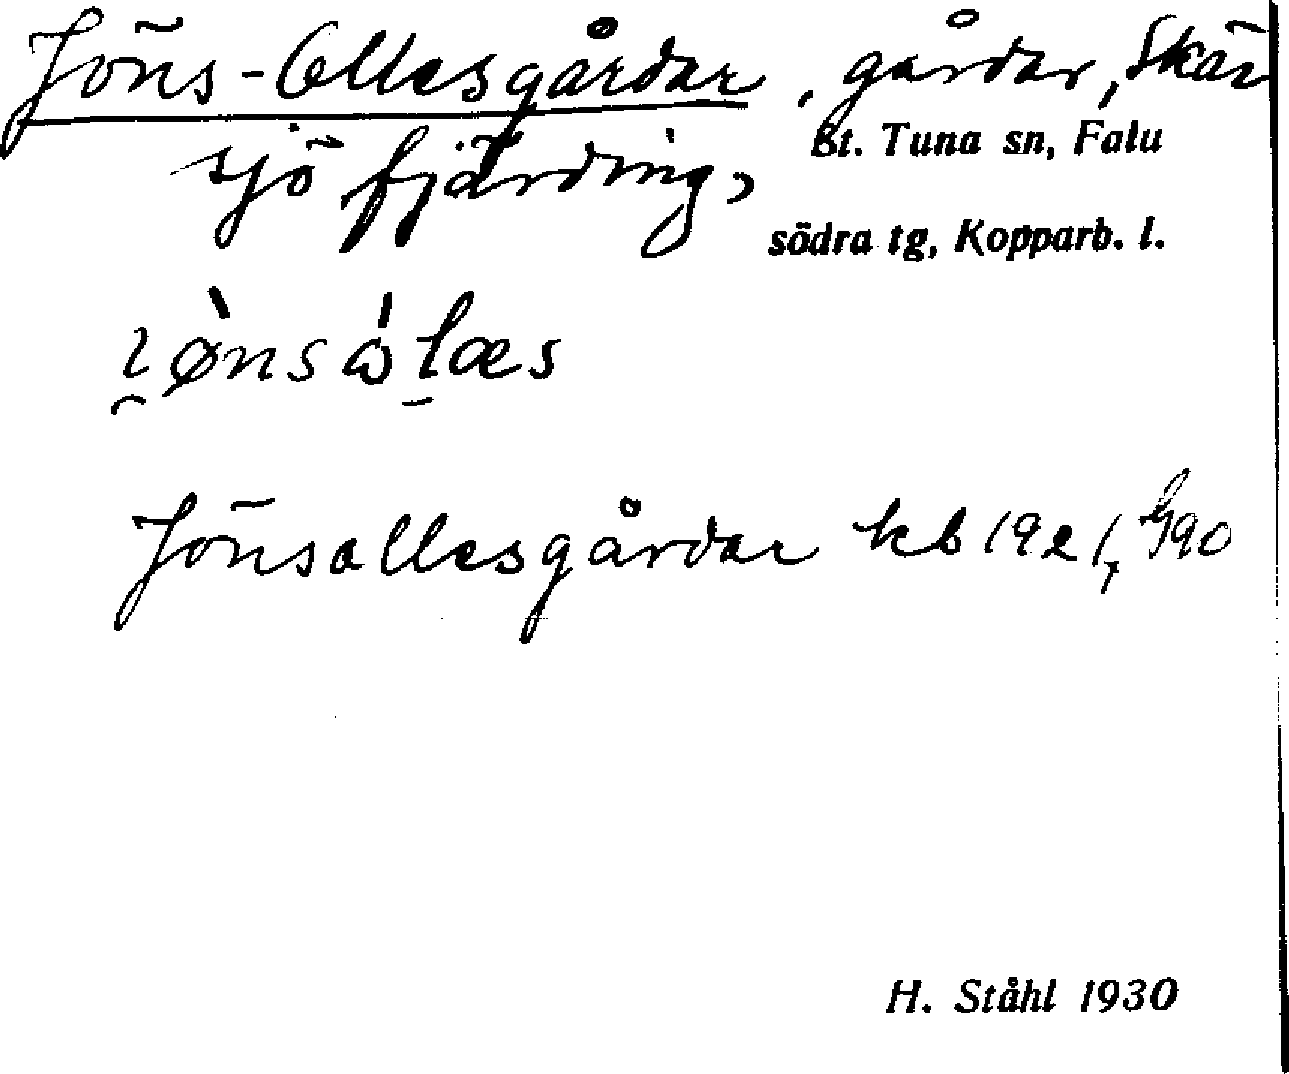 Jöns-Ollesgårdar, gårdar, Skär
sjö fjärding,
St. Tuna sn, Falu
södra tg, Kopparb. l.
Jönsollesgårdar kb 1921,
H. Ståhl 1930